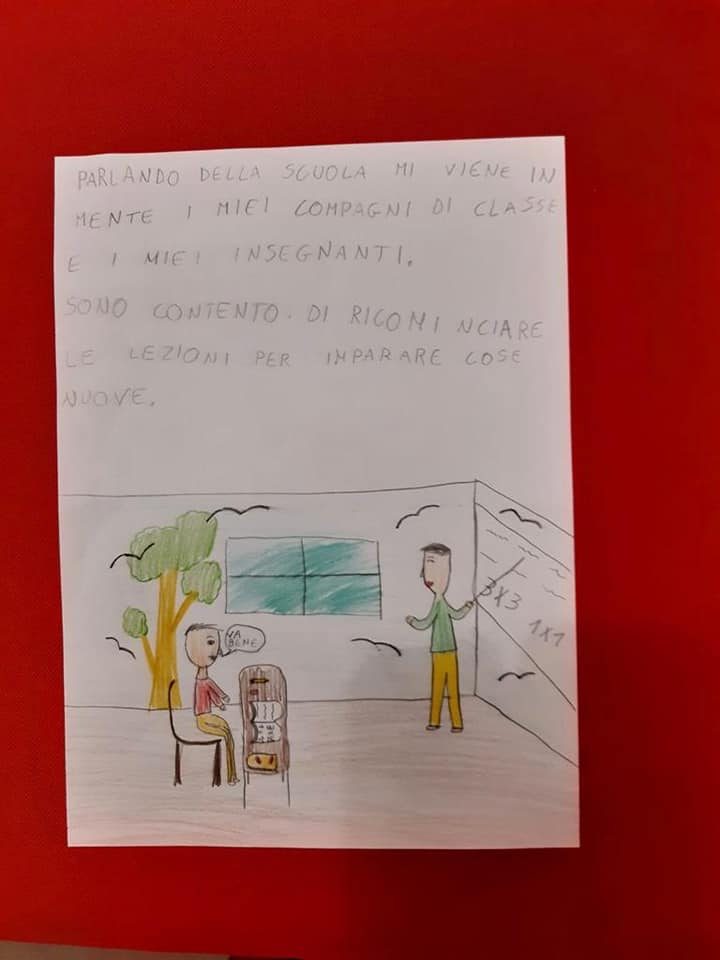 PARLANDO DELLA SCUOLA MI VIENE IN
MENTE I MIEI COMPAGNI DI CLASSE
E I MIEI INSEGNANTI.
SONO CONTENTO. DI RICOMINCIARE
LE LEZIONI PER IMPARARE COSE
NUOVE.
VA
BENE
3X3
1X1